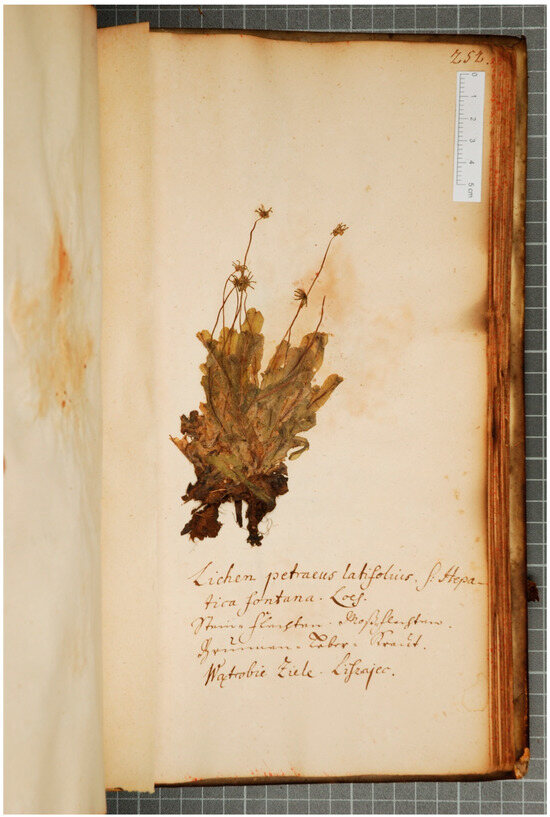 252.
0 1 2 3 4 5 cm
Lichen petraeus latifolius. s. Hepa-
tica fontana. Loes.
Stein-flechten. Moosflechten.
Brunnen-Leber-Kraut.
Wątrobie Ziele. Liszajec.